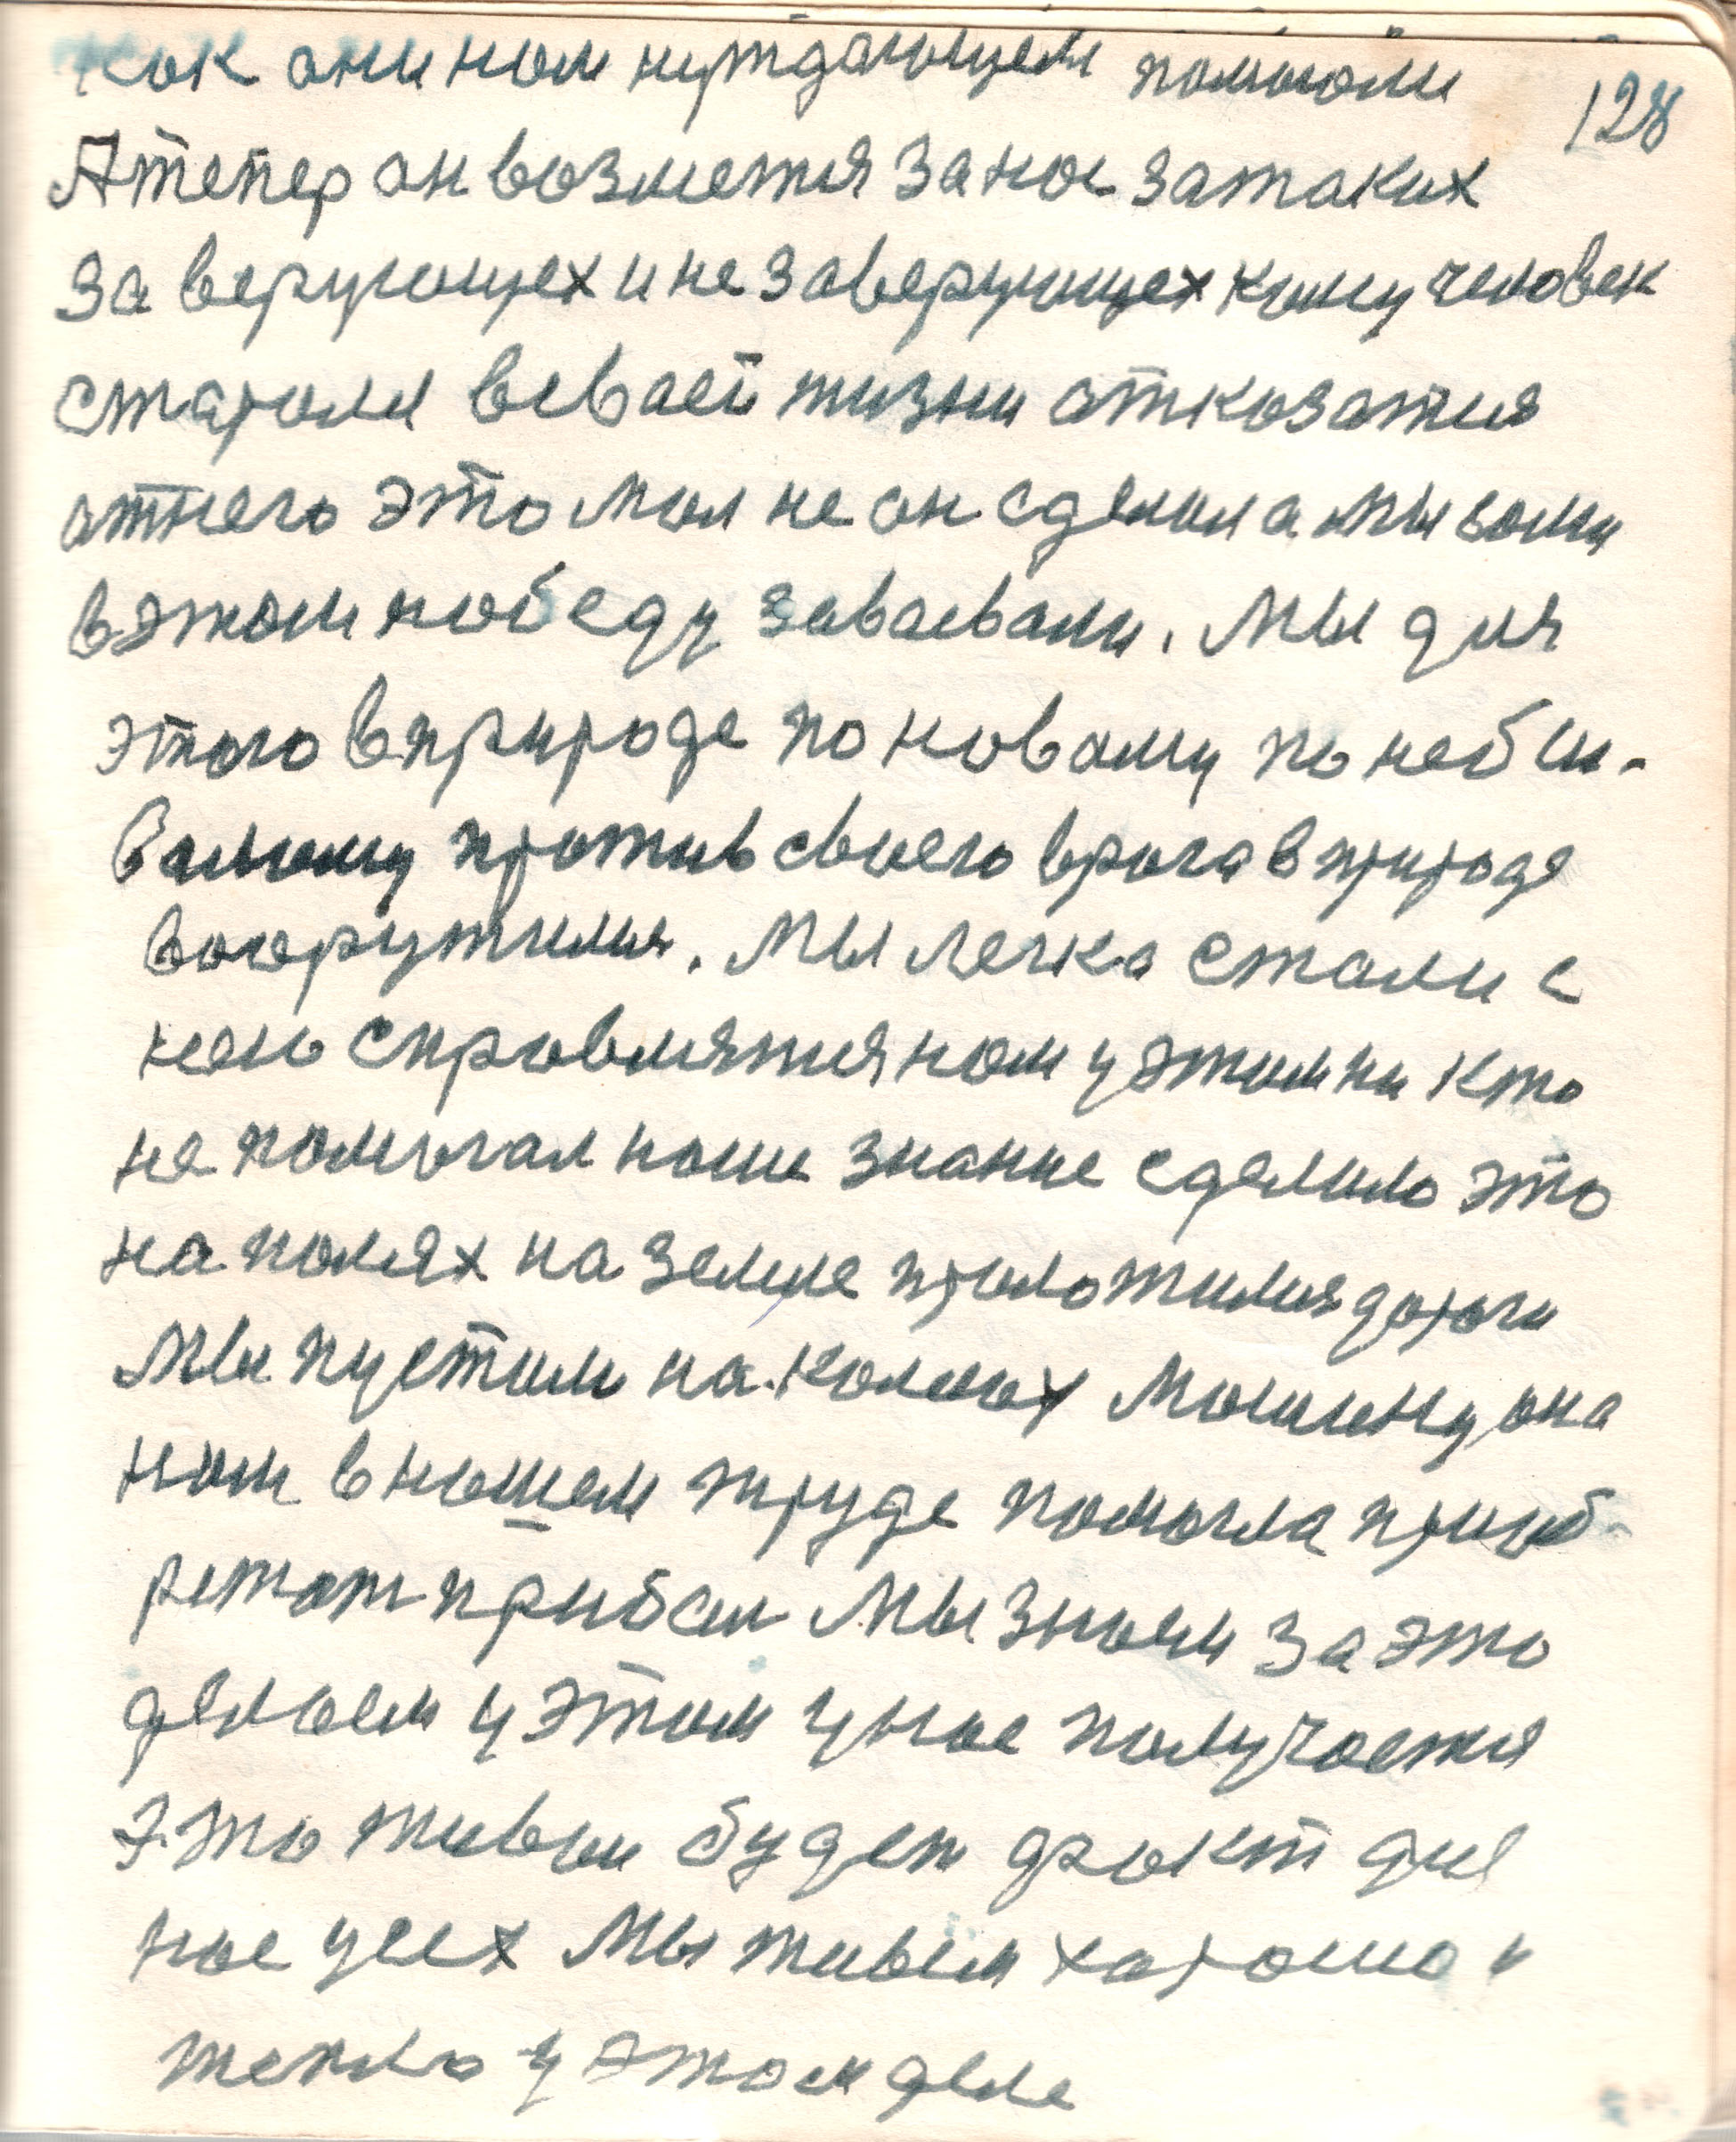 128
как они нам нуждающем помогали
А тепер он возметця за нас за таких
за верующех и не заверующех кому человек
старался в своей жизни отказатця
от него это мол не он сделил а мы сами
в этом победу завоевали. Мы для
этого в природе по новаму по небы-
валому против своего врага в природе
вооружилися. Мы легка стали с
нею справлятися нам у этим ни кто
не помогал наши знание сделило это
на полях на земле проложилися дороги
Мы пустили на колесах машину она
нам в нашем труде помогла приоб-
ретат прибыл Мы знаем за это
делаем у этом у нас получается
Это живой будет факт для
нас усех Мы живем харошо и
тепло у этом деле